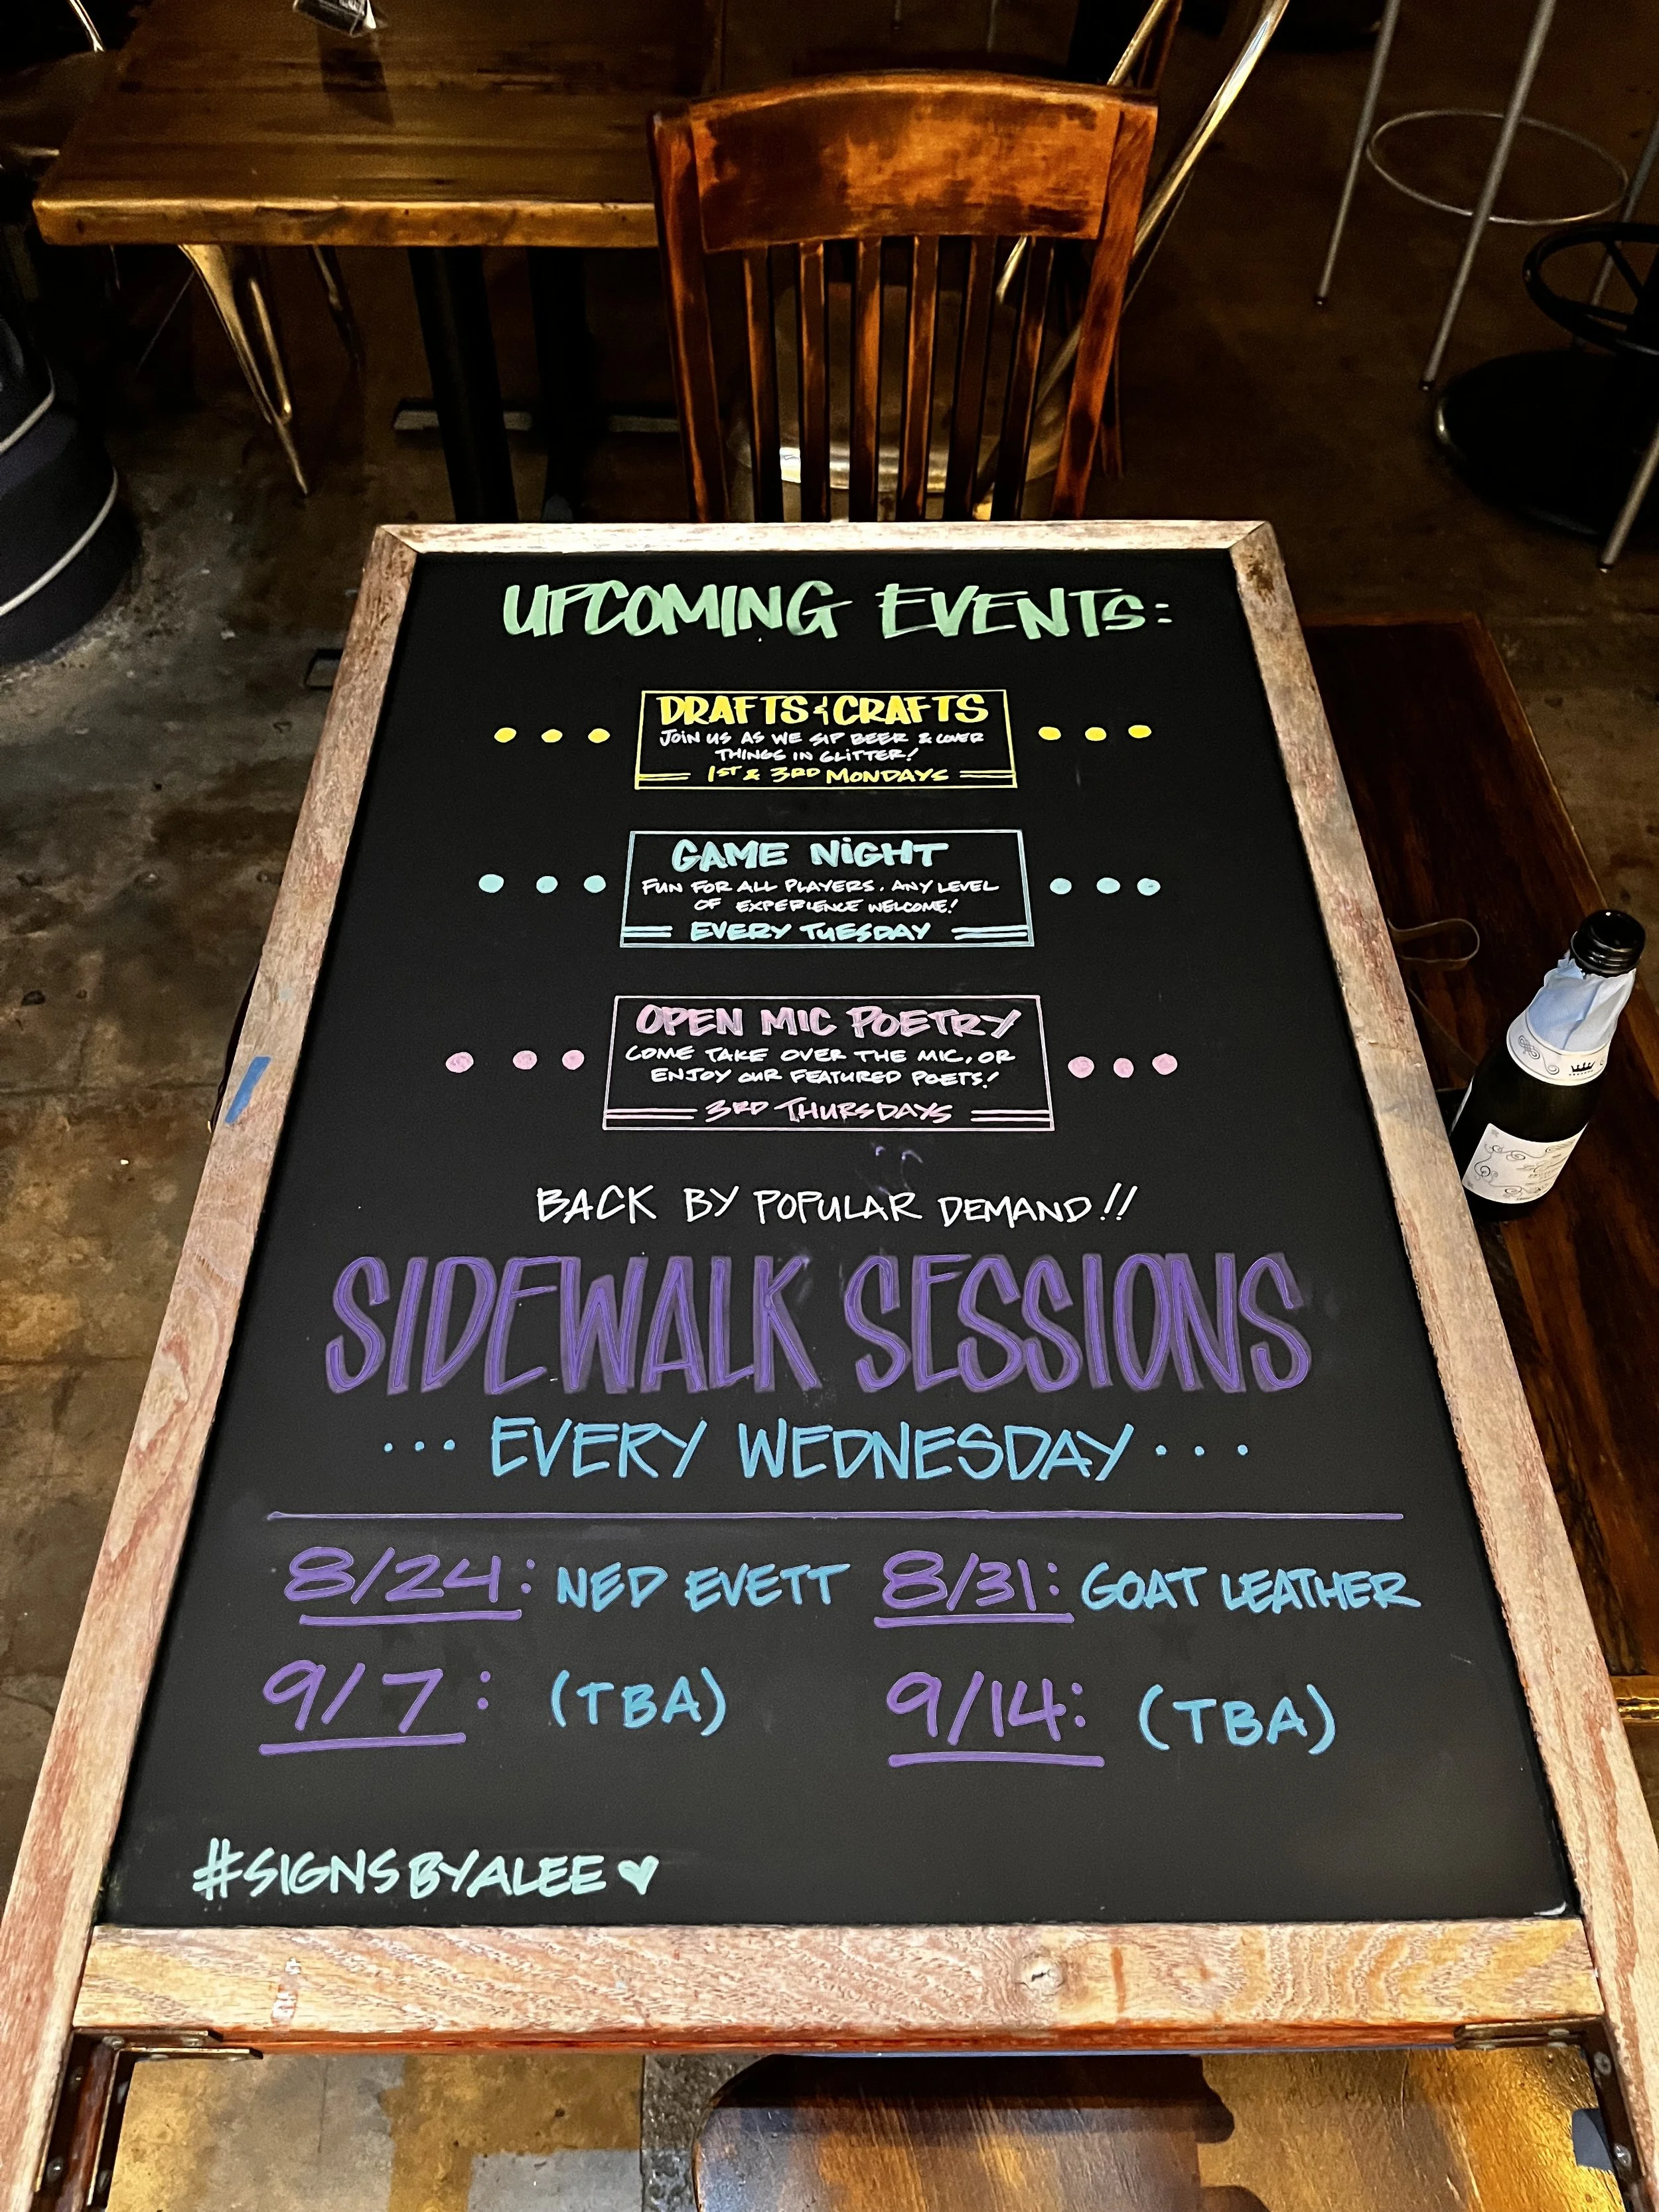 UPCOMING EVENTS:
DRAFTS & CRAFTS
JOIN US AS WE SIP BEER & COVER
THINGS IN GLITTER!
1ST & 3RD MONDAYS
GAME NIGHT
FUN FOR ALL PLAYERS. ANY LEVEL
OF EXPERIENCE WELCOME!
EVERY TUESDAY
OPEN MIC POETRY
COME TAKE OVER THE MIC, OR
ENJOY OUR FEATURED POETS!
3RD THURSDAYS
BACK BY POPULAR DEMAND!!
SIDEWALK SESSIONS
... EVERY WEDNESDAY ...
8/24: NED EVETT 8/31: GOAT LEATHER
9/7: (TBA) 9/14: (TBA)
#SIGNSBYALEE ♥